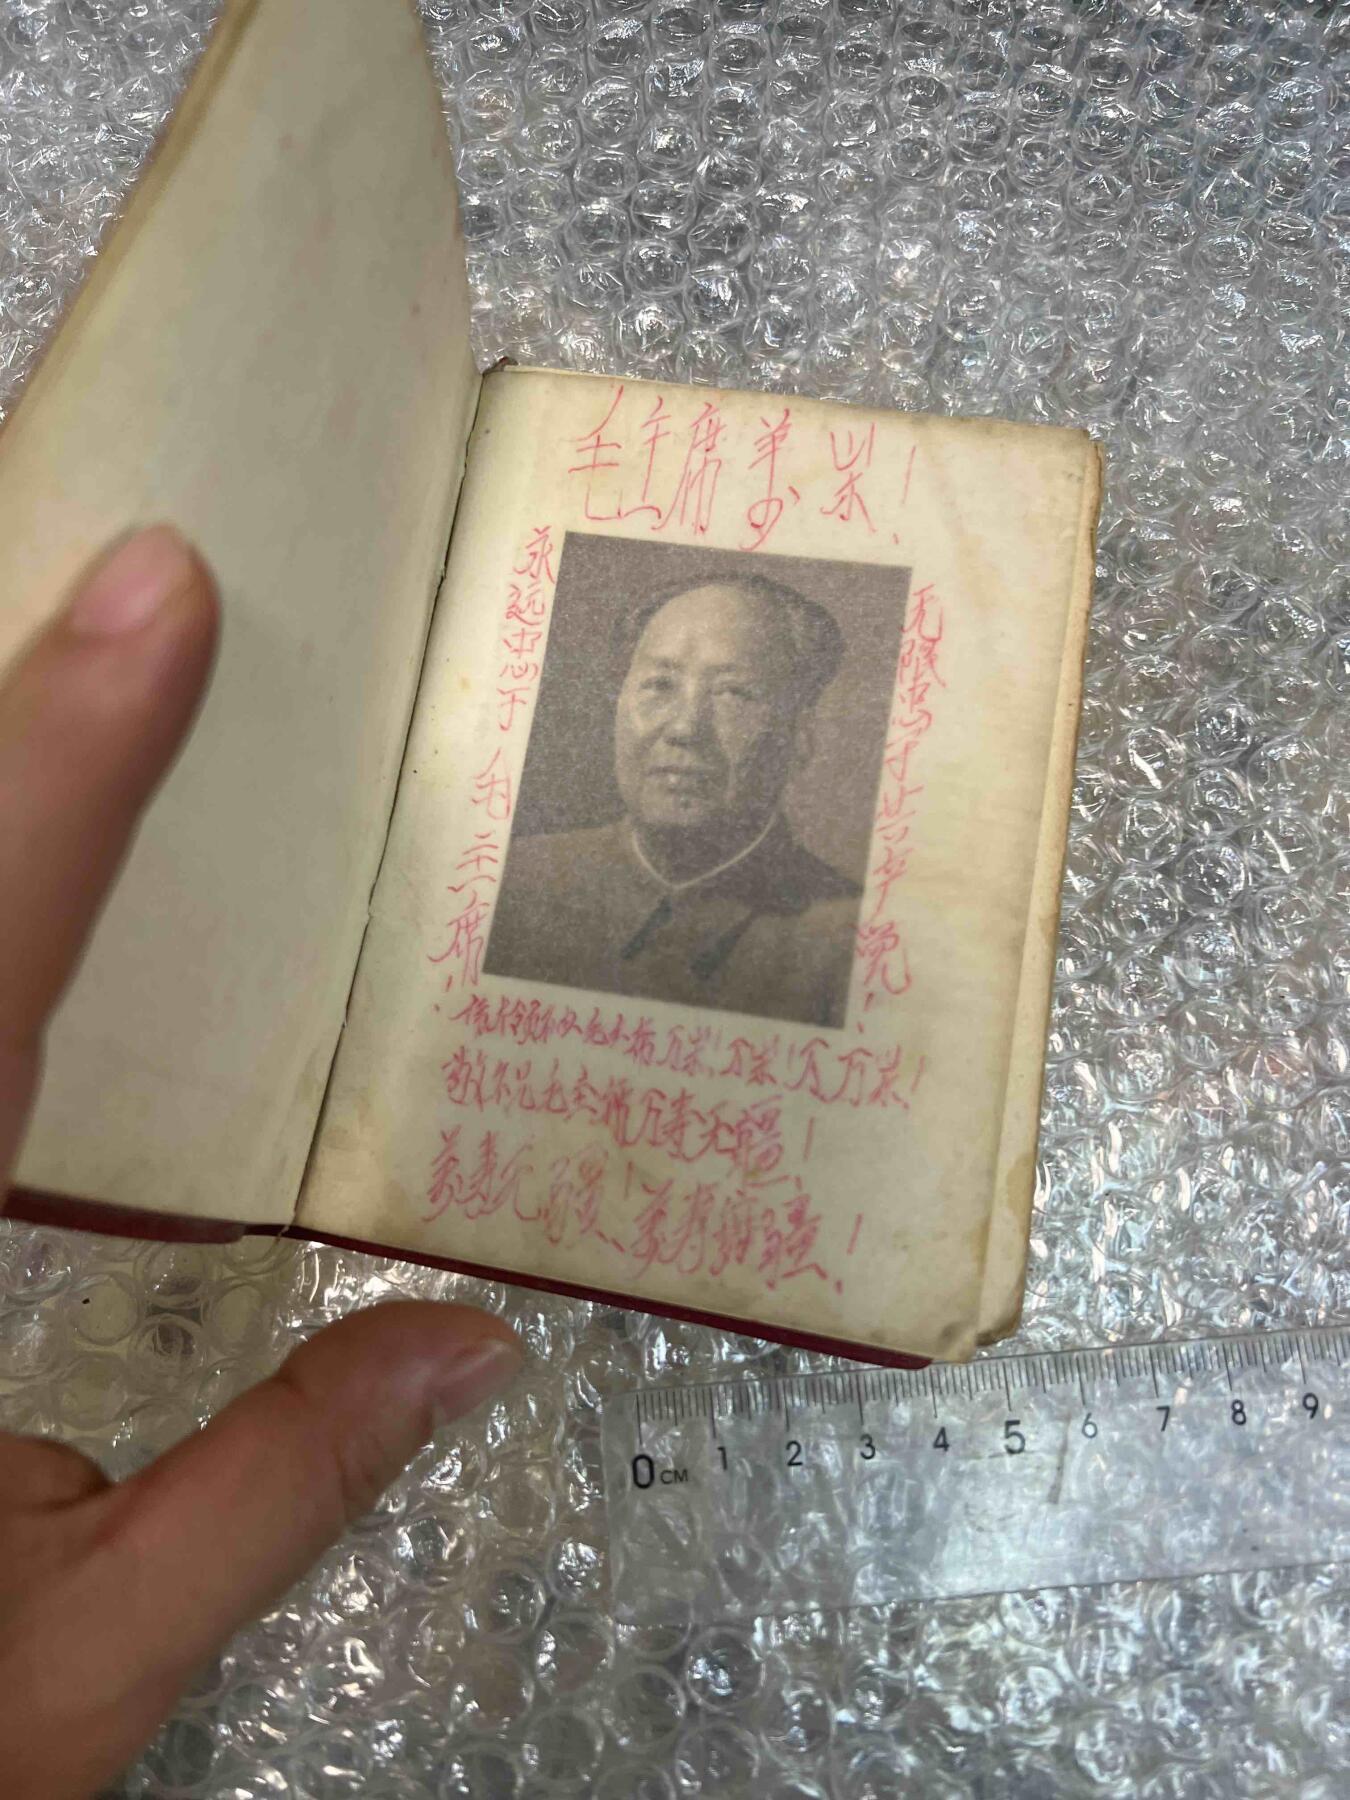 毛主席萬岁!
永远忠于毛主席!
无限忠于共产党!
伟大领袖毛主席万岁!万岁!万万岁!
敬祝毛主席万寿无疆!
萬寿无疆!萬寿無疆!
0 CM 1 2 3 4 5 6 7 8 9